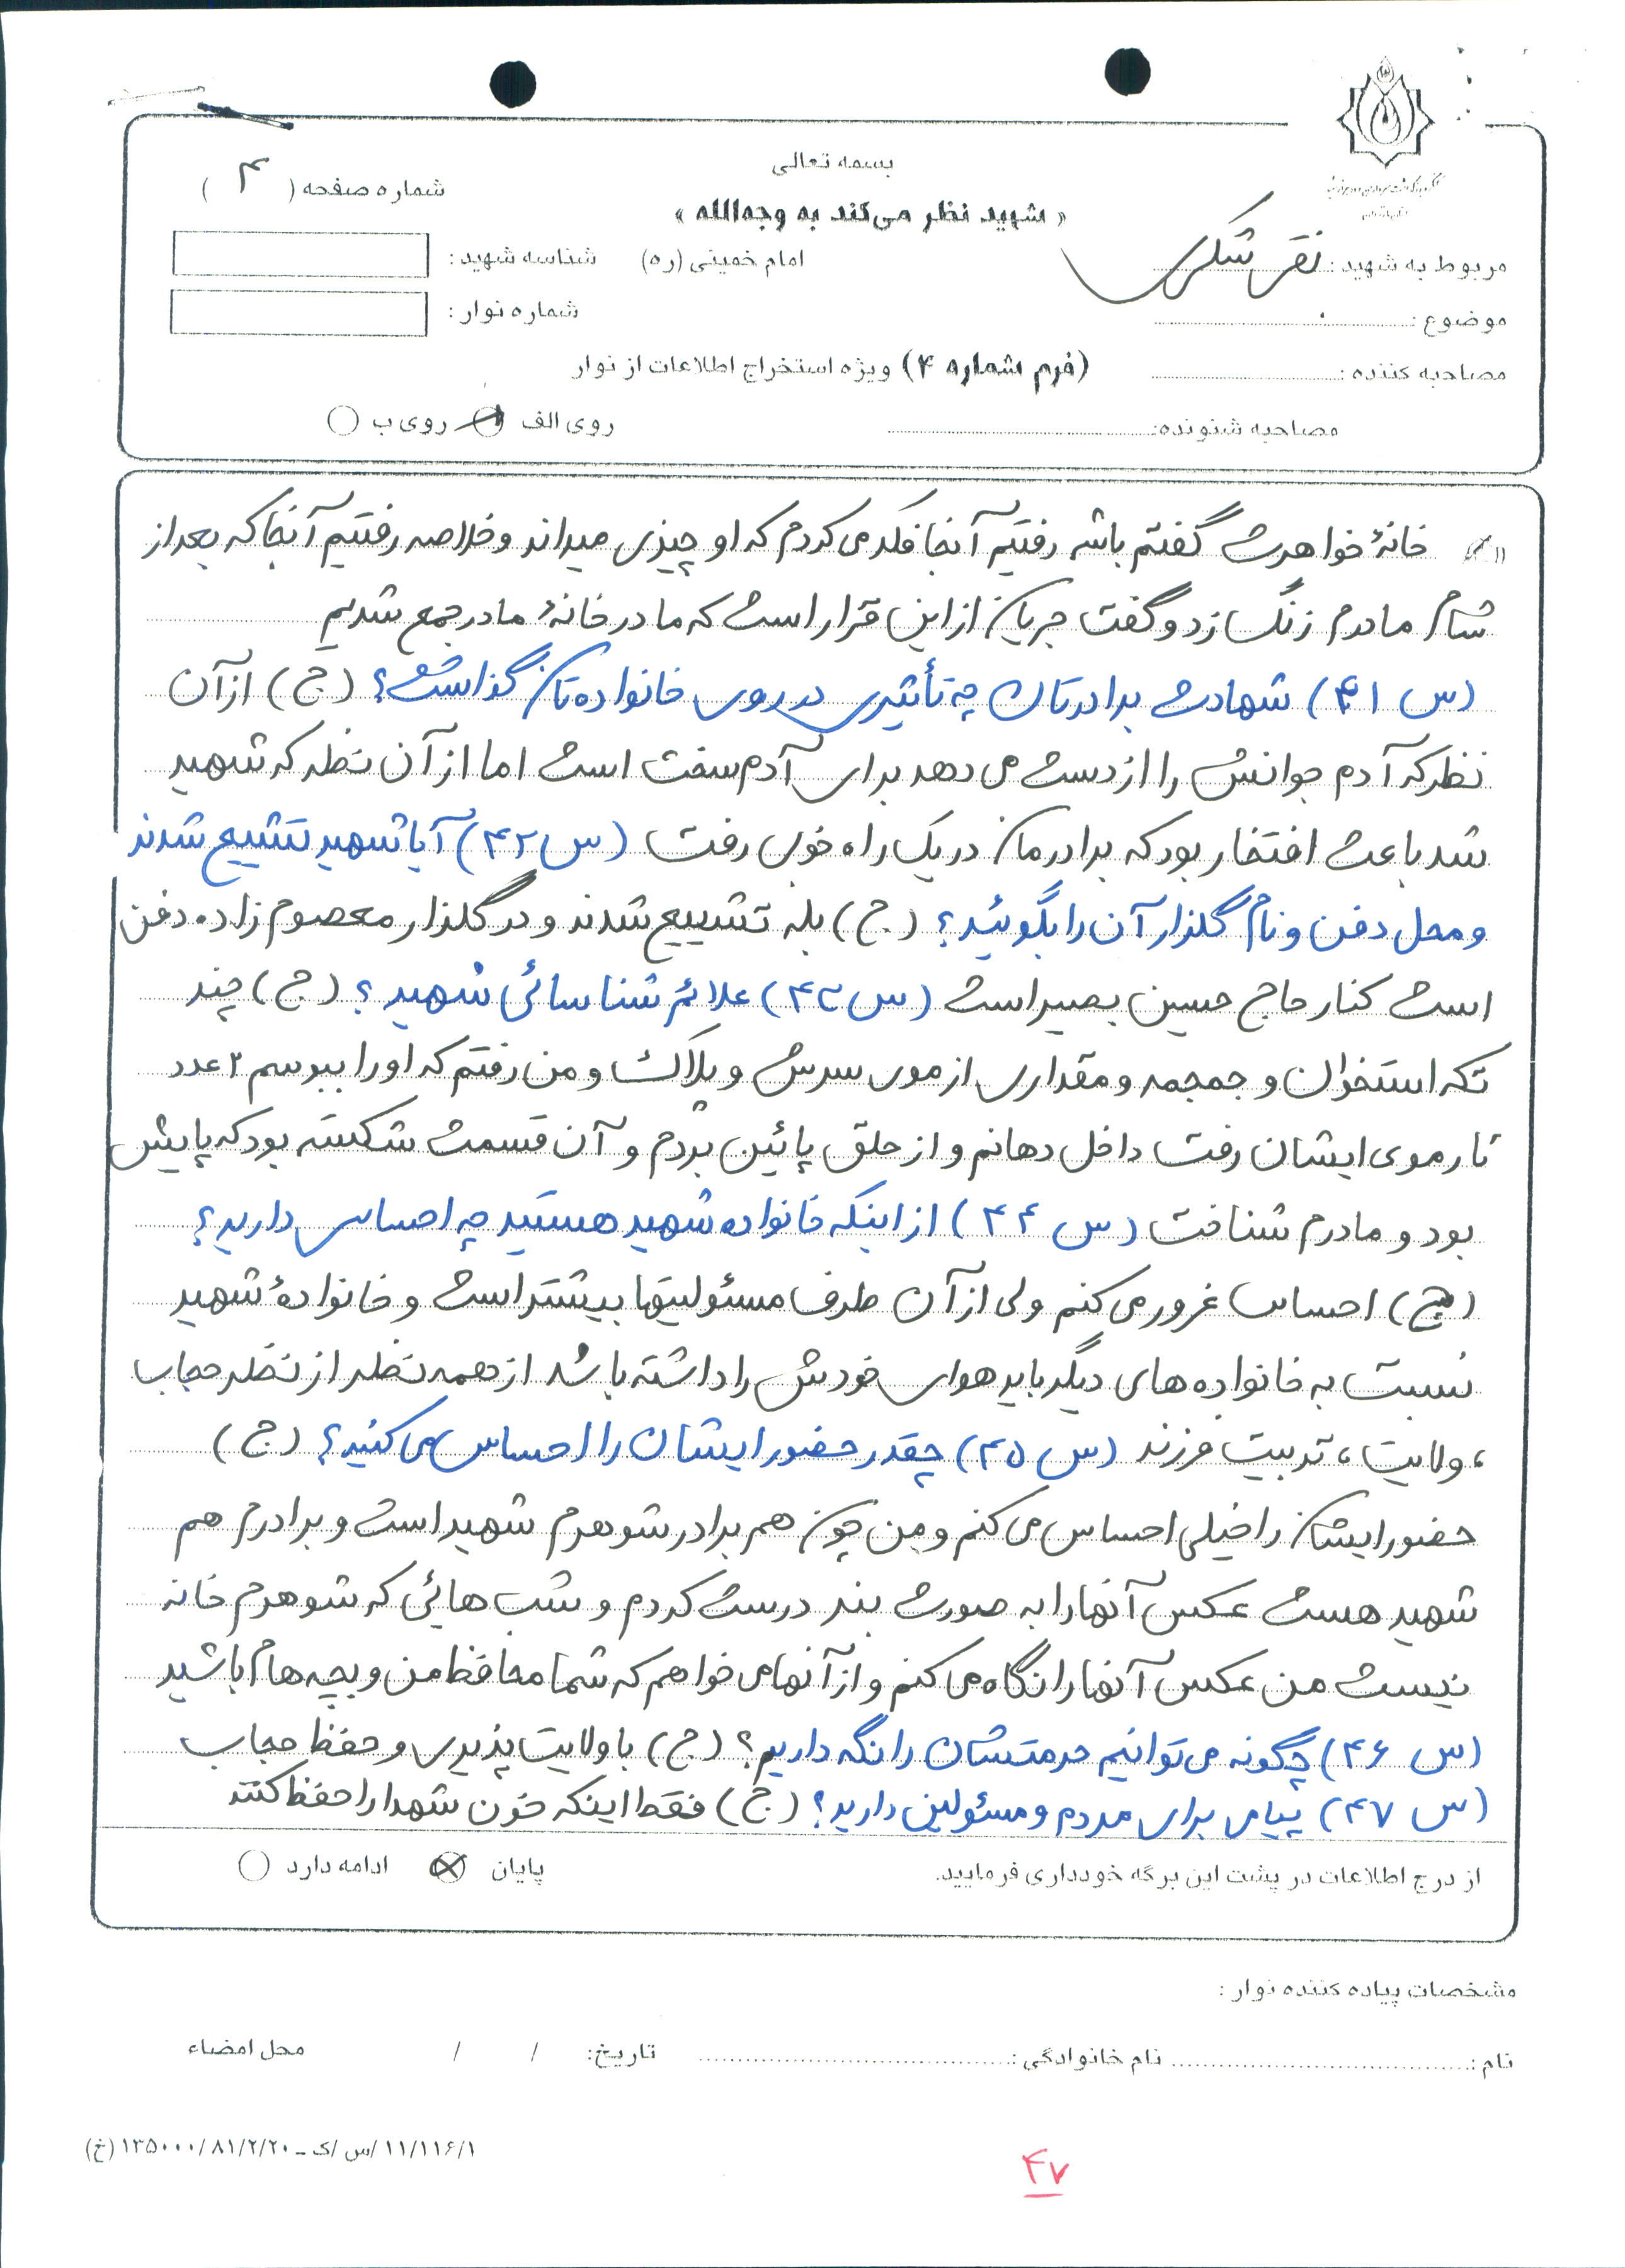 بسمه تعالی
شماره صفحه ( ۴ )
« شهید نظر می‌کند به وجه‌الله »
امام خمینی (ره)
مربوط به شهید :
شناسه شهید :
موضوع :
شماره نوار :
مصاحبه کننده :
(فرم شماره ۴) ویژه استخراج اطلاعات از نوار
مصاحبه شونده:
روی الف
روی ب
خانهٔ خواهرت گفتم باشه رفتیم آنجا فکر می کردم که او چیزی میداند و خلاصه رفتیم آنجا که بعد از
شام مادرم زنگ زد و گفت جریان از این قرار است که ما در خانهٔ مادر جمع شدیم
(س ۴۱) شهادت برادرتان چه تأثیری در روی خانواده تان گذاشت؟ (ج) از آن
نظر که آدم جوانش را از دست می دهد برای آدم سخت است اما از آن نظر که شهید
شد باعث افتخار بود که برادرمان در یک راه خوبی رفت (س ۴۲) آیا شهید تشییع شدند
و محل دفن و نام گلزار آن را بگوئید؟ (ج) بله تشییع شدند و در گلزار معصوم زاده دفن
است کنار حاج حسین بصیر است (س ۴۳) علائم شناسائی شهید؟ (ج) چند
تکه استخوان و جمجمه و مقداری از موی سرش و پلاک و من رفتم که او را ببوسم ۲ عدد
تار موی ایشان رفت داخل دهانم و از حلق پائین بردم و آن قسمت شکسته بود که پایش
بود و مادرم شناخت (س ۴۴) از اینکه خانواده شهید هستید چه احساسی دارید؟
(ج) احساس غرور می کنم ولی از آن طرف مسئولیتها بیشتر است و خانوادهٔ شهید
نسبت به خانواده های دیگر باید هوای خودش را داشته باشد از همه نظر از نظر حجاب
، ولایت، تربیت فرزند (س ۴۵) چقدر حضور ایشان را احساس می کنید؟ (ج)
حضور ایشان را خیلی احساس می کنم و من چون هم برادر شوهرم شهید است و برادرم هم
شهید هست عکس آنها را به صورت بند درست کردم و شب هائی که شوهرم خانه
نیست من عکس آنها را نگاه می کنم و از آنها می خواهم که شما محافظ من و بچه هام باشید
(س ۴۶) چگونه می توانیم حرمتشان را نگه داریم؟ (ج) با ولایت پذیری و حفظ حجاب
(س ۴۷) پیامی برای مردم و مسئولین دارید؟ (ج) فقط اینکه خون شهدا را حفظ کنند
از درج اطلاعات در پشت این برگه خودداری فرمایید.
پایان
ادامه دارد
مشخصات پیاده کننده نوار :
نام : نام خانوادگی : تاریخ: / / محل امضاء
۱۱/۱۱۶/۱/س/ک – ۱۳۵۰۰۰/۸۱/۲/۲۰ (خ)
۴۷